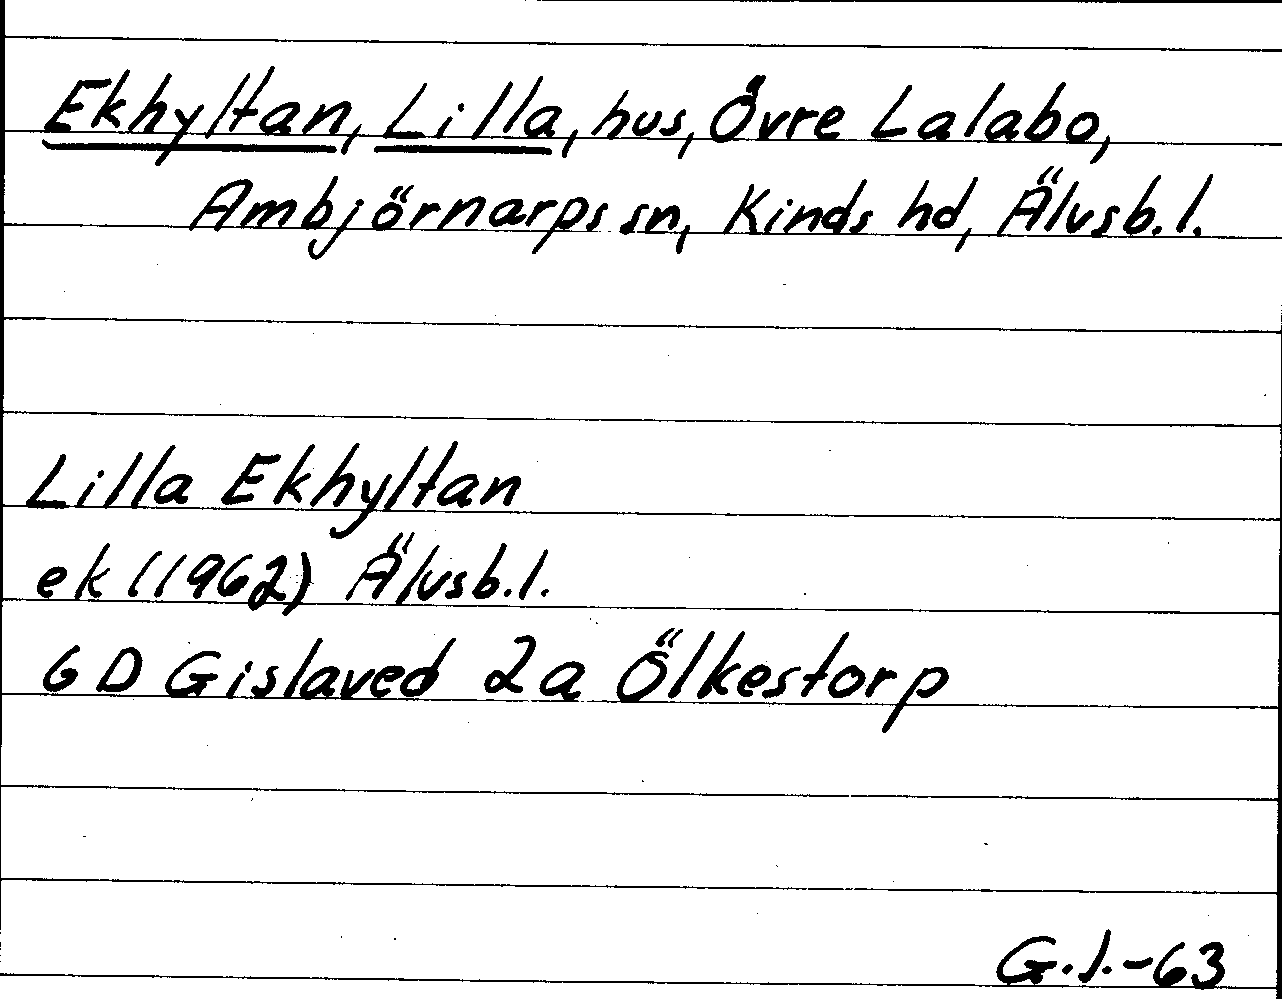 Ekhyltan, Lilla, hus, Övre Lalabo,
Ambjörnarps sn, Kinds hd, Älvsb.l.
Lilla Ekhyltan
ek (1962) Älvsb.l.
6 D Gislaved 2a Ölkestorp
G.J.-63